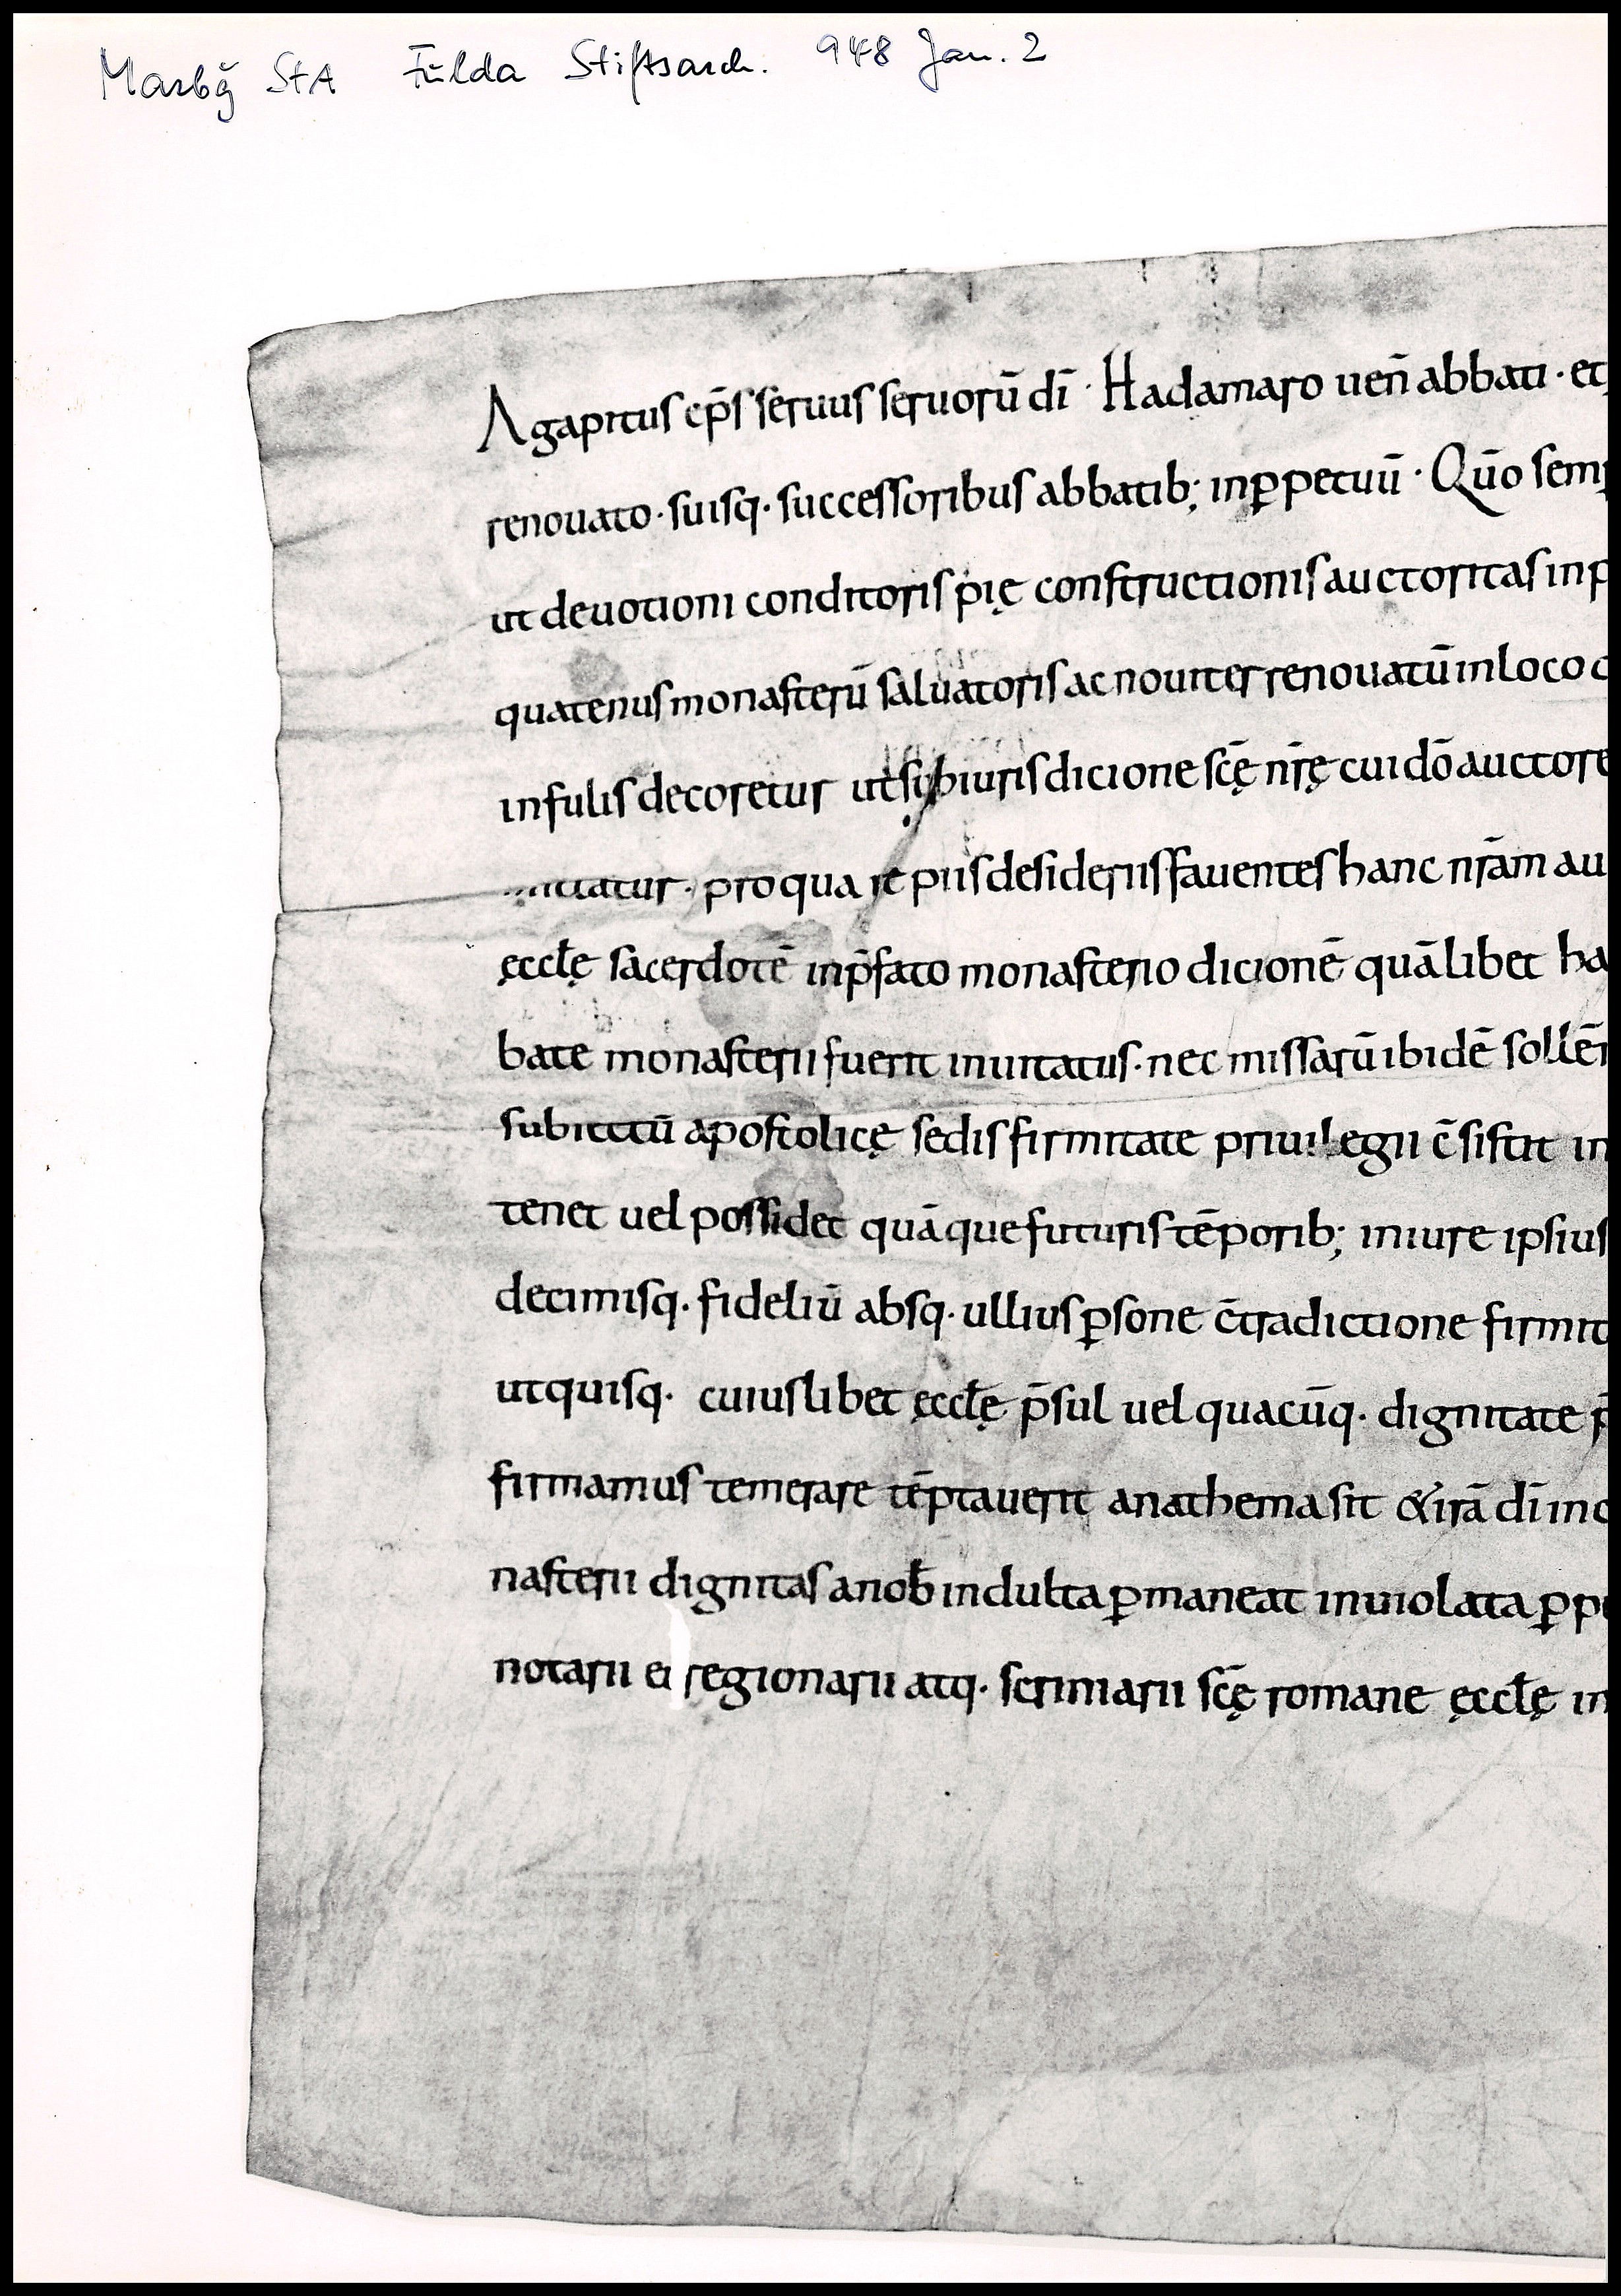 Marbg̃ StA Fulda Stiftsarch. 948 Jan. 2
Agapitus ep̄s seruus seruorū dī · Hadamaro uen̄ abbati · et
renouato · suisq· successoribus abbatib; inꝑpetuū · Qūo semp
ut deuotioni conditoris pię constructionis auctoritas inp
quatenus monasterū saluatoris ac nouiter renouatū in loco
infulis decoretur ut sub iurisdicione scę̄ nr̄ę cui dō auctore
pro qua re piis desideriis fauentes hanc nr̄am au
ęccłę sacerdotē inp̄fato monasterio dicionē quālibet ha
bate monasterii fuerit inuitatus · nec missarū ibidē sollēn
subiectū apostolicę sedis firmitate priuilegii c̄sistit in
tenet uel possidet quāque futuris tēporib; in iure ipsius
decimisq· fideliū absq· ullius ꝑsone c̄tradictione firmit
utquisq· cuiuslibet ęccłę p̄sul uel quacūq· dignitate p̄
firmamus temerare tēptauerit anathema sit & irā dī inc
nasterii dignitas a nob̄ indulta ꝑmaneat inuiolata ꝑpe
notarii et regionarii atq· scriniarii scę̄ romane ęccłę in